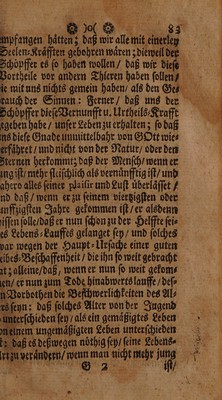 )o( 83
empfangen hätten; daß wir alle mit einerley
Seelen-Kräfften gebohren wären; dieweil der
Schöpffer es so haben wollen/ daß wir diese
Vortheile vor andern Thieren haben sollen/
die mit uns nichts gemein haben/ als den Ge-
brauch der Sinnen: Ferner/ daß uns der
Schöpffer diese Vernunfft u. Urtheils-Krafft
gegeben habe/ unser Leben zu erhalten; so daß
uns diese Gnade unmittelbahr von GOtt wie-
derfähret/ und nicht von der Natur/ oder den
Sternen herkommt; daß der Mensch/ wenn er
jung ist/ mehr fleischlich als vernünfftig ist/ und
dahero alles seiner plaisir und Lust überlässet/
und daß/ wenn er zu seinem vierzigsten oder
funffzigsten Jahre gekommen ist/ er alsdenn
wissen solle/ daß er nun schon zu der Helffte sei-
nes Lebens-Lauffes gelanget sey/ und solches
zwar wegen der Haupt-Ursache einer guten
Leibes-Beschaffenheit/ die ihn so weit gebracht
hat; alleine/ daß/ wenn er nun so weit gekom-
men/ er nun zum Tode hinabwerts lauffe/ des-
sen Vorbothen die Beschwerlichkeiten des Al-
ters seyn: daß solches Alter von der Jugend
so unterschieden sey/ als ein gemäßigtes Leben
von einem ungemäßigten Leben unterschieden
ist: daß es deßwegen nöthig sey/ seine Lebens-
Art zu verändern/ wenn man nicht mehr jung
G 2 ist/